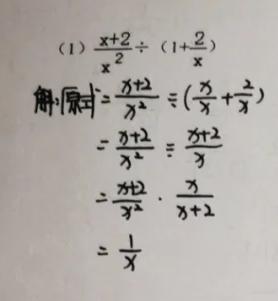 (1) \frac{x+2}{x^2} ÷ (1+\frac{2}{x})
解:原式=\frac{x+2}{x^2} ÷ (\frac{x}{x}+\frac{2}{x})
=\frac{x+2}{x^2} ÷ \frac{x+2}{x}
=\frac{x+2}{x^2} · \frac{x}{x+2}
=\frac{1}{x}